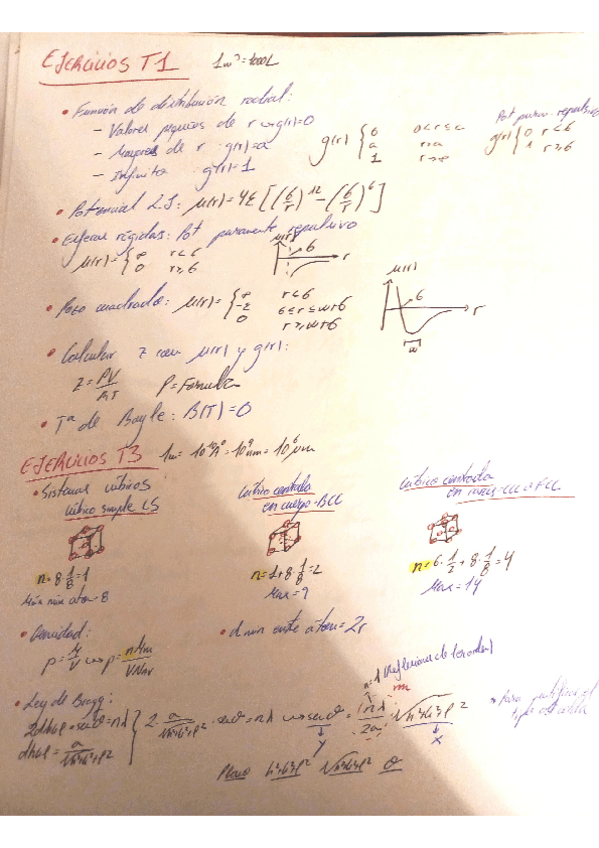 EJERCICIOS T1 1m³=1000L
• Función de distribución radial:
– Valores pequeños de r → g(r)=0
– Mayores de r g(r)=a
– Infinito g(r)=1
g(r) { 0 0<r≤a
a r>a
1 r→∞
Pot puram. repulsivo
g(r) { 0 r<б
1 r≥б
• Potencial L.J: μ(r)=4ε[(б/r)^12 − (б/r)^6]
• Esferas rígidas: Pot puramente repulsivo
μ(r)= { ∞ r<б
0 r≥б
μ(r) б r
• Pozo cuadrado: μ(r)= { ∞ r<б
-ε б≤r≤wб
0 r≥wб
μ(r) б r
w
• Calcular z con μ(r) y g(r):
z = PV/RT P=Formula
• Tª de Boyle: B(T)=0
EJERCICIOS T3 1m=10^10 Å=10^9 nm=10^6 μm
• Sistemas cúbicos
Cúbico simple CS
Cúbico centrado
en cuerpo-BCC
Cúbico centrado
en caras-CCC o FCC
n=8·1/8=1
n=1+8·1/8=2
n=6·1/2+8·1/8=4
átom=8
Max=9
Max=14
• Densidad:
ρ=M/V → ρ=nMm/VNav
• d min entre átom=2r
• Ley de Bragg:
2dhkl·senθ=nλ
dhkl=a/√h²+k²+l²
2·a/√h²+k²+l²·senθ=nλ → senθ=1nλ/2a √h²+k²+l²
n=1 (Reflexiones de 1er orden)
Y X
Plano h²+k²+l² √h²+k²+l² θ